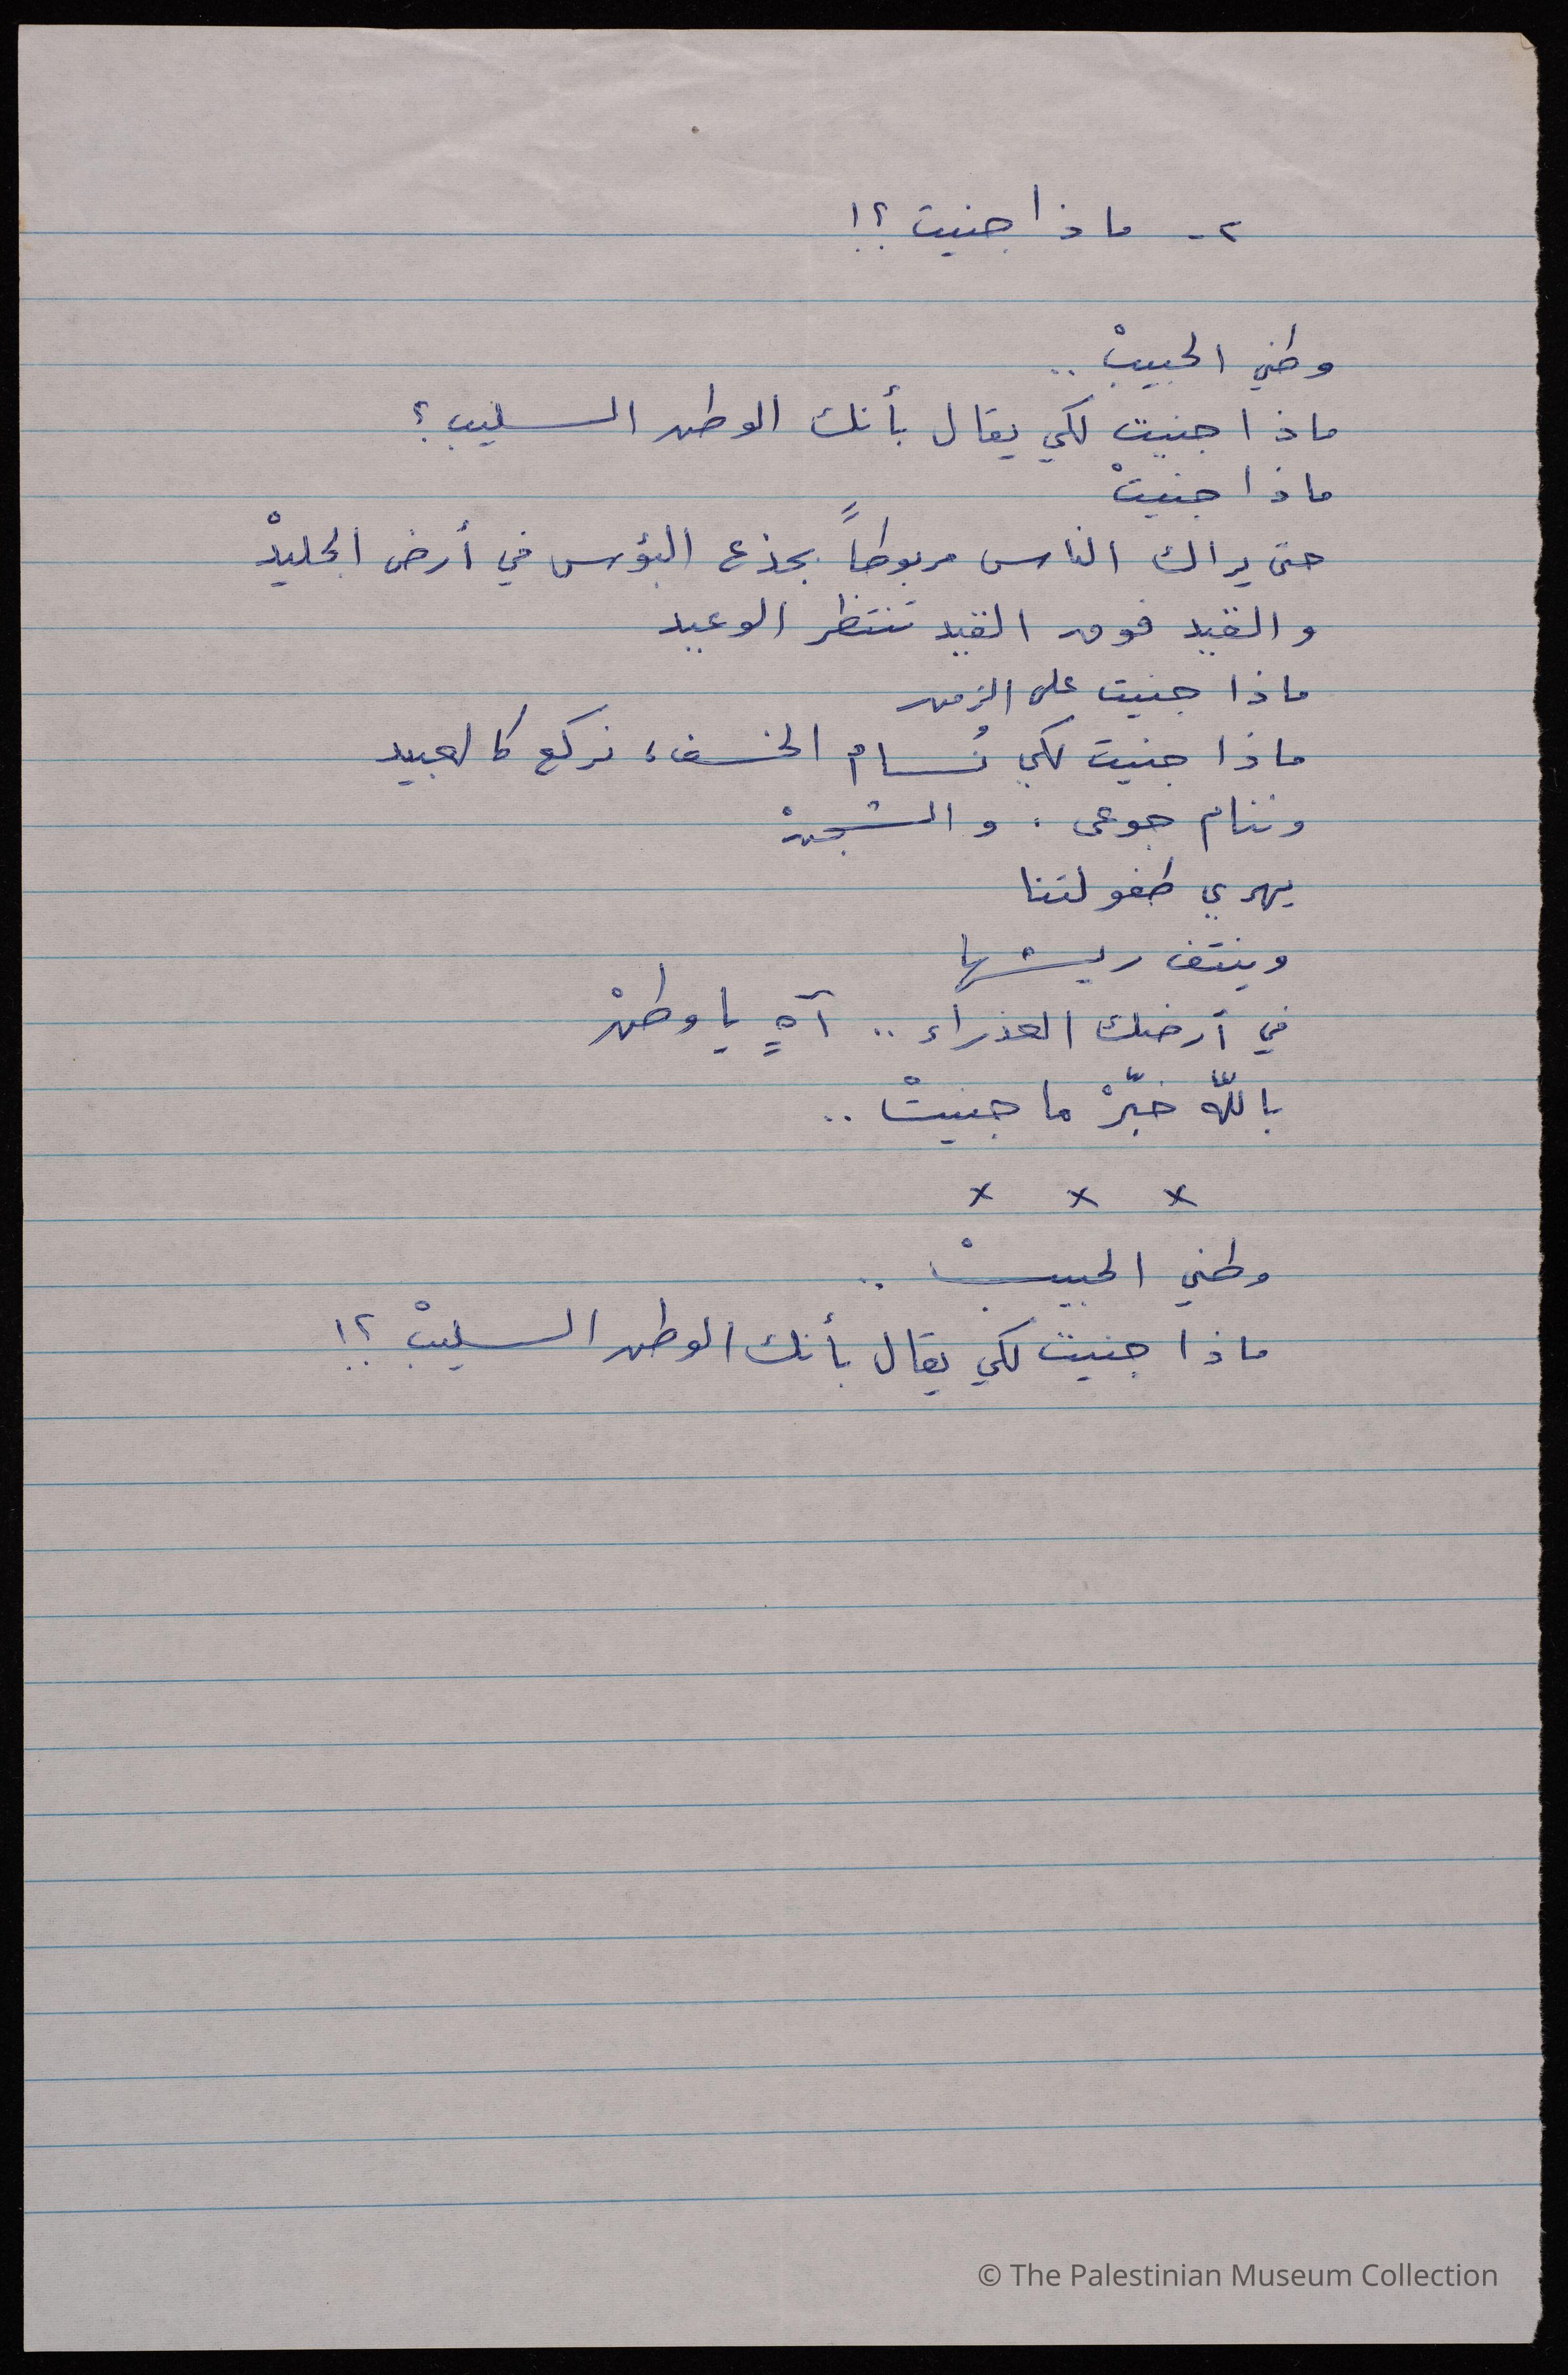 ٢- ماذا جنيت ؟!
وطني الحبيبْ ..
ماذا جنيت لكي يقال بأنك الوطن السليب ؟
ماذا جنيتْ
حتى يراك الناس مربوطاً بجذع البؤس في أرض الجليدْ
والقيد فوق القيد تنتظر الوعيد
ماذا جنيت على الزمن
ماذا جنيت لكي نُسام الخسف، نركع كالعبيد
وننام جوعى . والشجنْ
يهري طفولتنا
وينتف ريشها
في أرضك العذراء .. آهٍ يا وطنْ
باللّه خبّرْ ما جنيتْ ..
x x x
وطني الحبيبْ ..
ماذا جنيت لكي يقال بأنك الوطن السليبْ ؟!
© The Palestinian Museum Collection